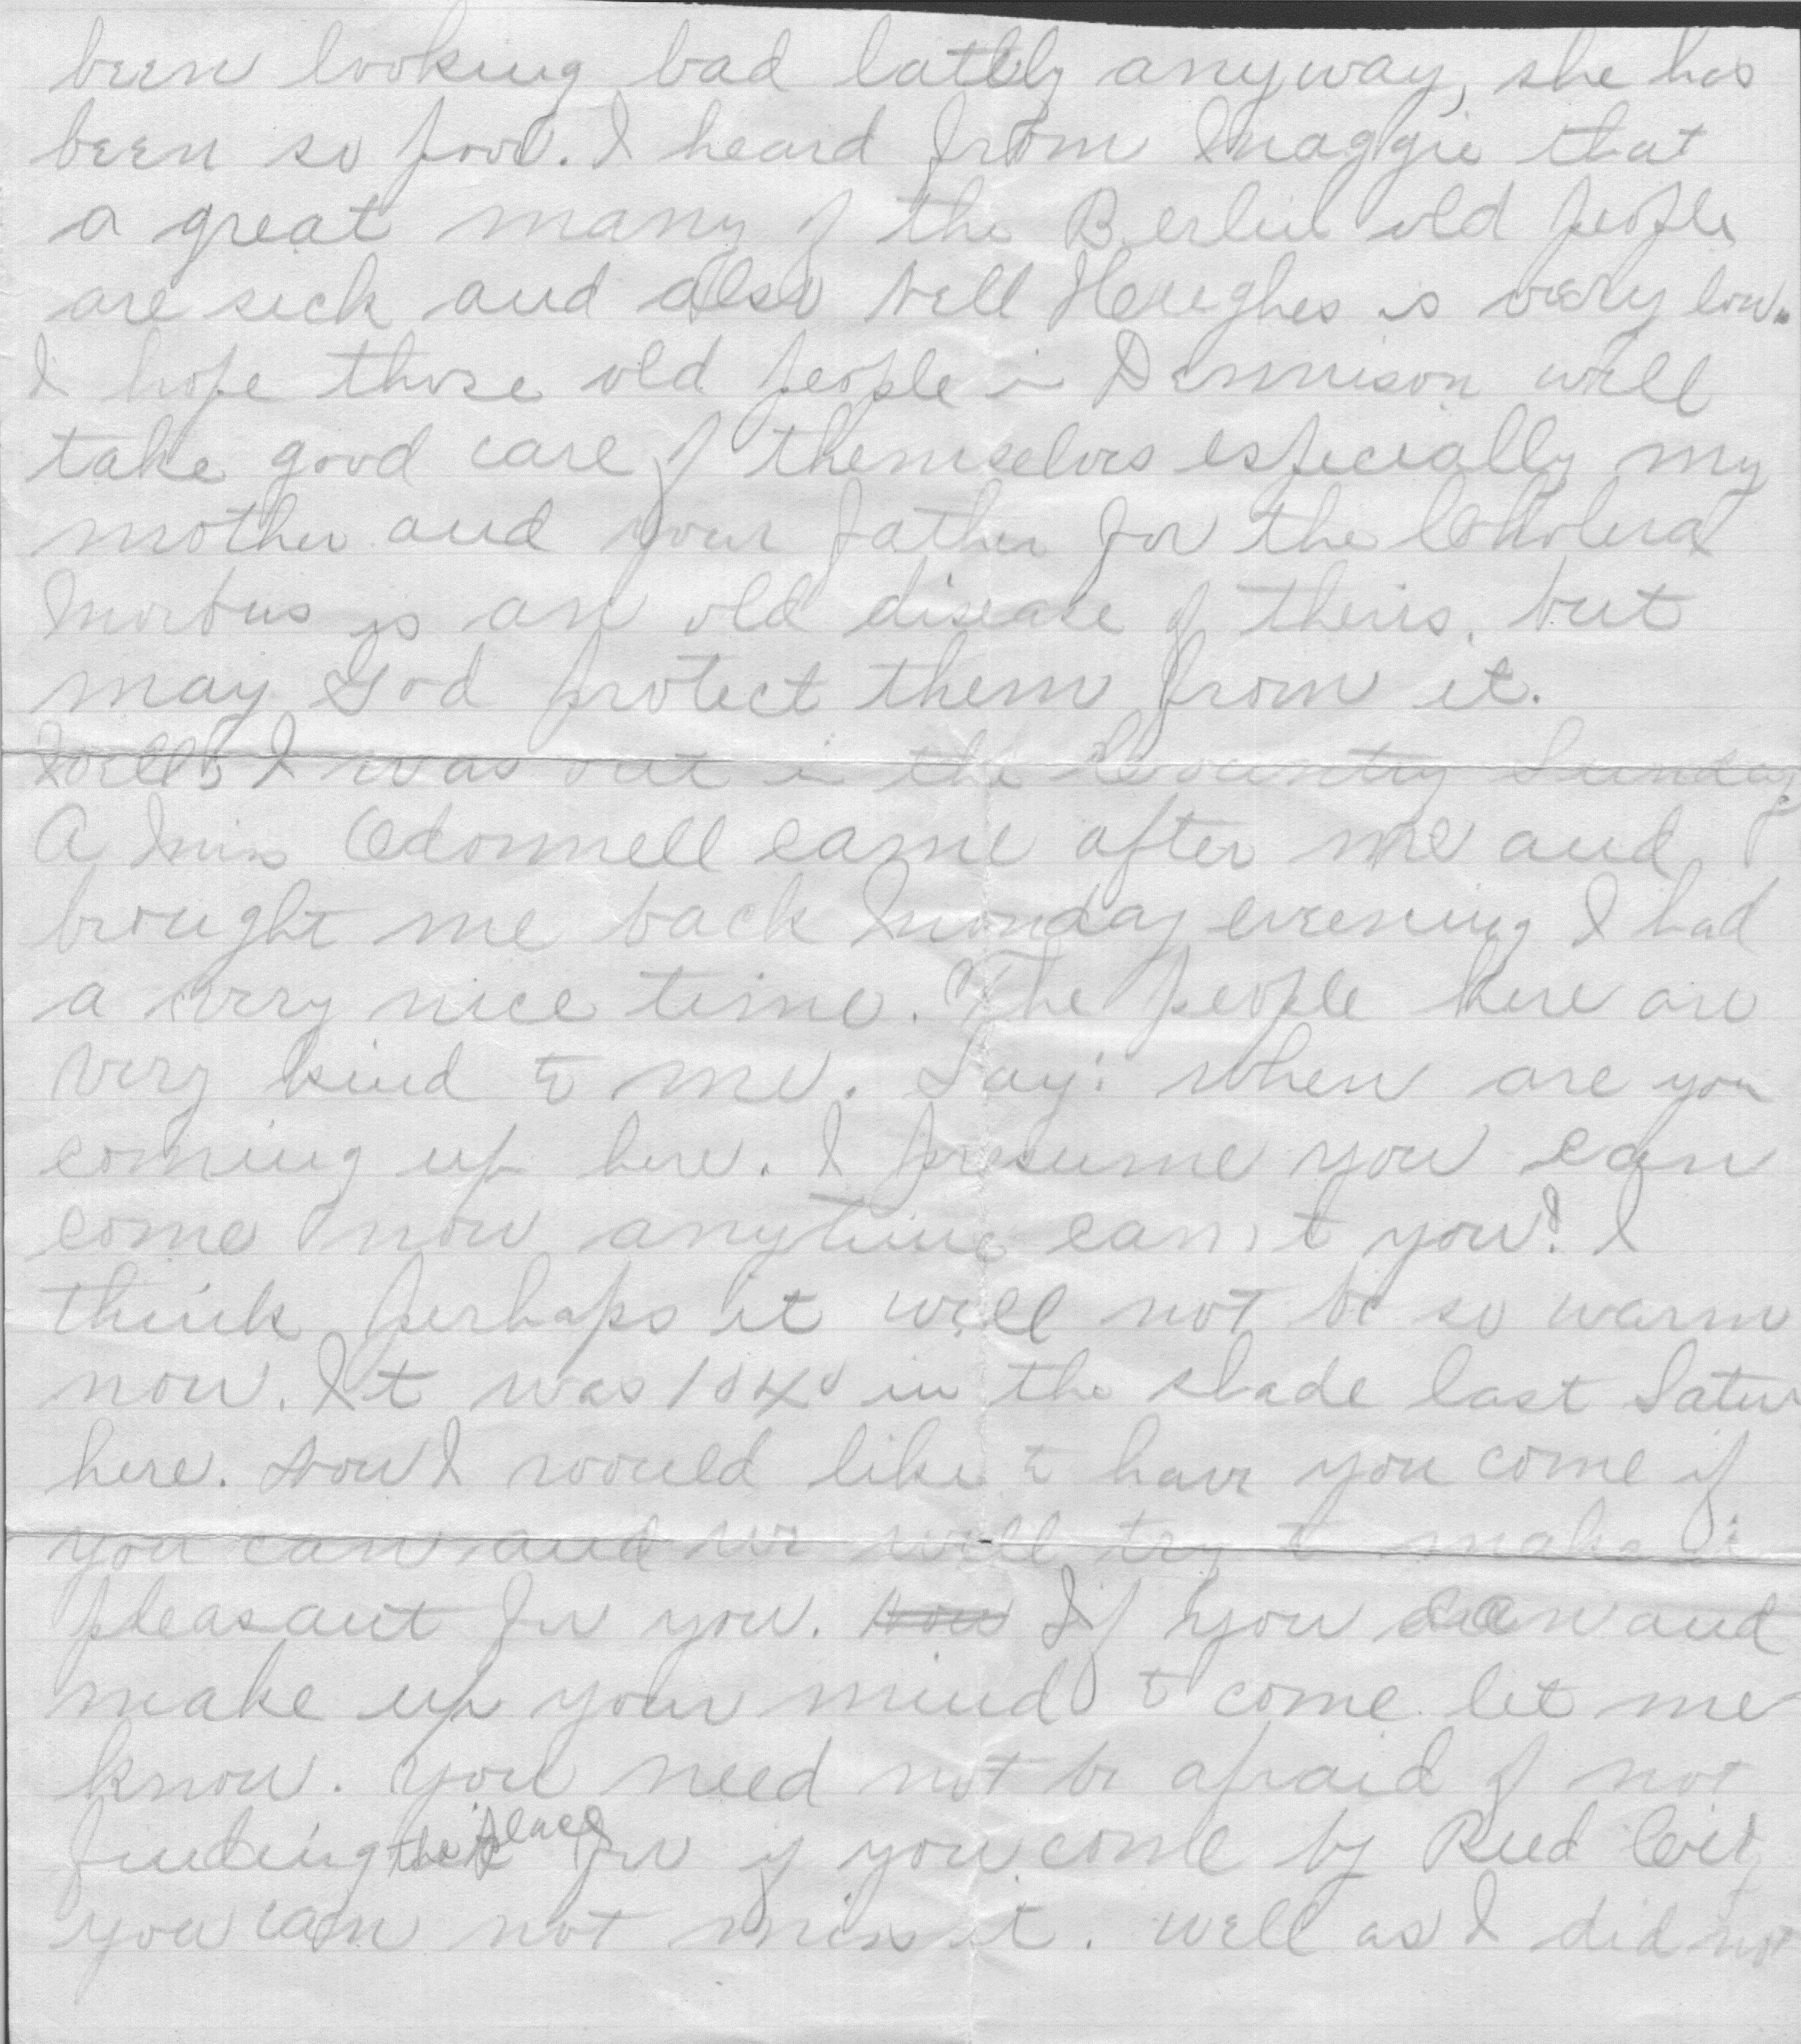 been looking bad lately anyway, she has
been so poor. I heard from Maggie that
a great many of the Berlin old people
are sick and also Nell Hughes is very low.
I hope those old people in Dennison will
take good care of themselves especially my
mother and your father for the Cholera
Morbus is an old disease of theirs. but
may God protect them from it.
Well, I was out in the Country Sunday
A Miss Odonnell came after me and
brought me back Monday evening I had
a very nice time. The people here are
very kind to me. Say: when are you
coming up here. I presume you can
come now anytime can't you? I
think perhaps it will not be so warm
now. It was 104° in the shade last Satur
here. Now I would like to have you come if
you can and we will try to make it
pleasant for you. Now If you can and
make up your mind to come let me
know. You need not be afraid of not
finding the place for if you come by Reed City
you can not miss it. Well as I did not